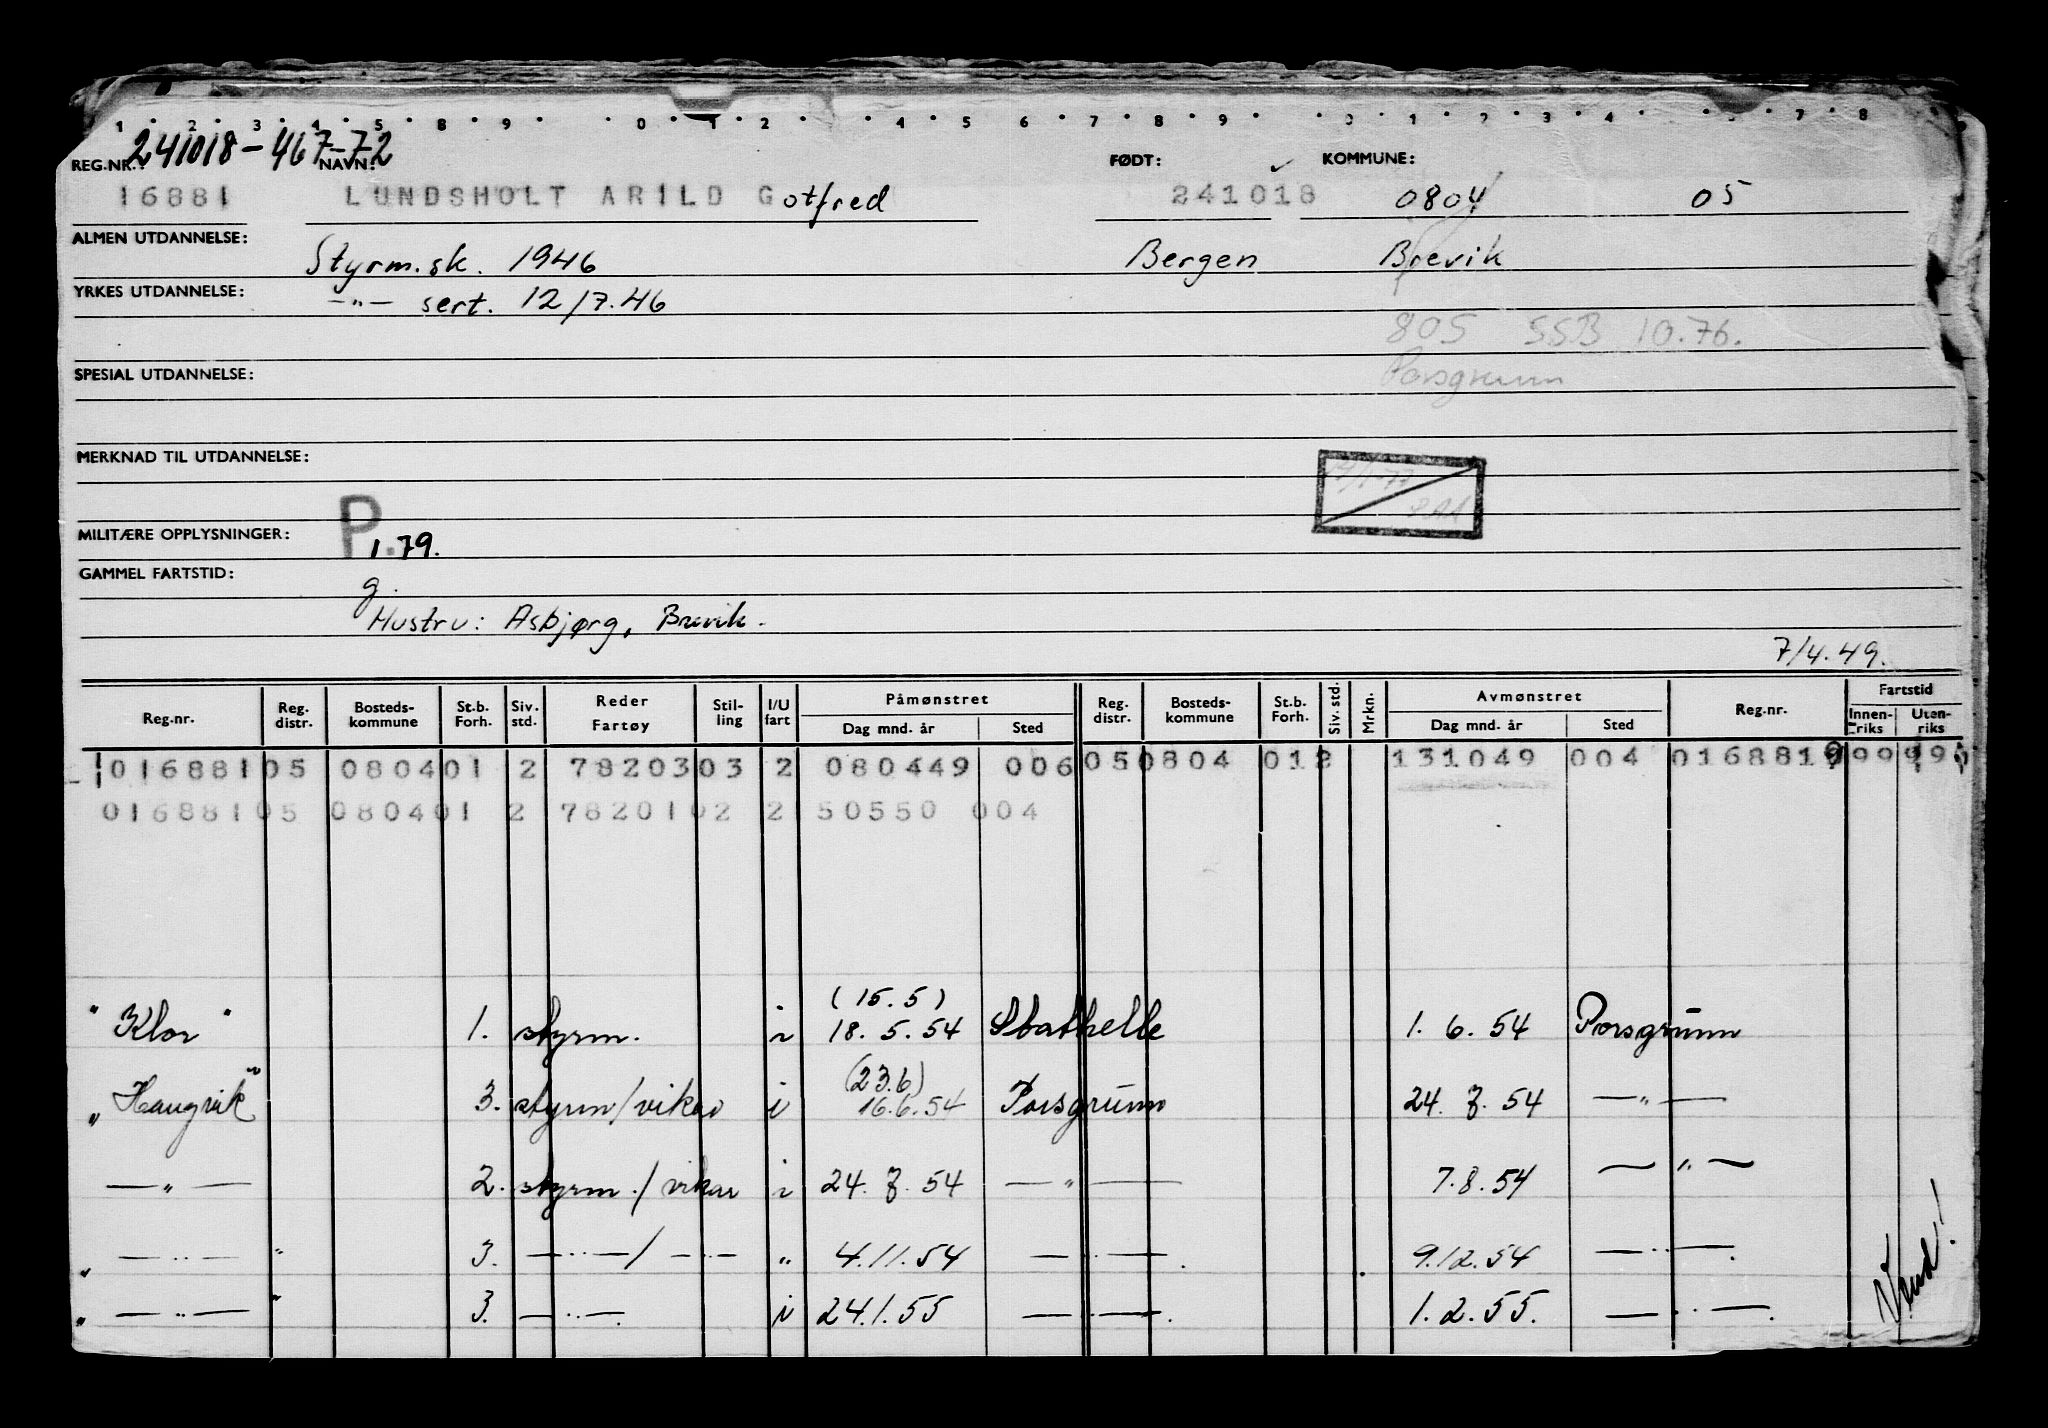 1 2 3 4 5 8 9 0 1 2 4 5 6 7 8 9 0 1 2 3 4 7 8
241018-467-72
REG.NR.: NAVN: FØDT: KOMMUNE:
16881 LUNDSHOLT ARILD Gotfred 241018 0804 05
ALMEN UTDANNELSE: Styrm.sk. 1946 Bergen Brevik
YRKES UTDANNELSE: —"— sert. 12/7.46
805 SSB 10.76.
SPESIAL UTDANNELSE: Porsgrunn
MERKNAD TIL UTDANNELSE:
P
MILITÆRE OPPLYSNINGER: 1.79.
GAMMEL FARTSTID: g.
Hustru: Asbjørg, Brevik.
7/4.49.
Reg.nr. Reg. distr. Bosteds-kommune St.b. Forh. Siv. std. Reder Fartøy Stil-ling I/U fart Påmønstret Dag mnd. år Sted Reg. distr. Bosteds-kommune St.b. Forh. Siv. std. Mrkn. Avmønstret Dag mnd. år Sted Reg.nr. Fartstid Innen-riks Uten-riks
016881 05 0804 01 2 78203 03 2 080449 006 05 0804 01 2 131049 004 016881
016881 05 0804 01 2 78201 02 2 50550 004
(15.5)
"Klor" 1. styrm. i 18.5.54 Stathelle 1.6.54 Porsgrunn
(23.6)
"Haugvik" 3. styrm/vikar i 16.6.54 Porsgrunn 24.7.54 —"—
—"— 2. styrm./vikar i 24.7.54 —"— 7.8.54 —"—
" —"— " 3. —"—/—"— " 4.11.54 —"—. 9.12.54 —"—.
" —"— " 3. —"—. i 24.1.55 —"—. 1.2.55. —"—.
Vend!